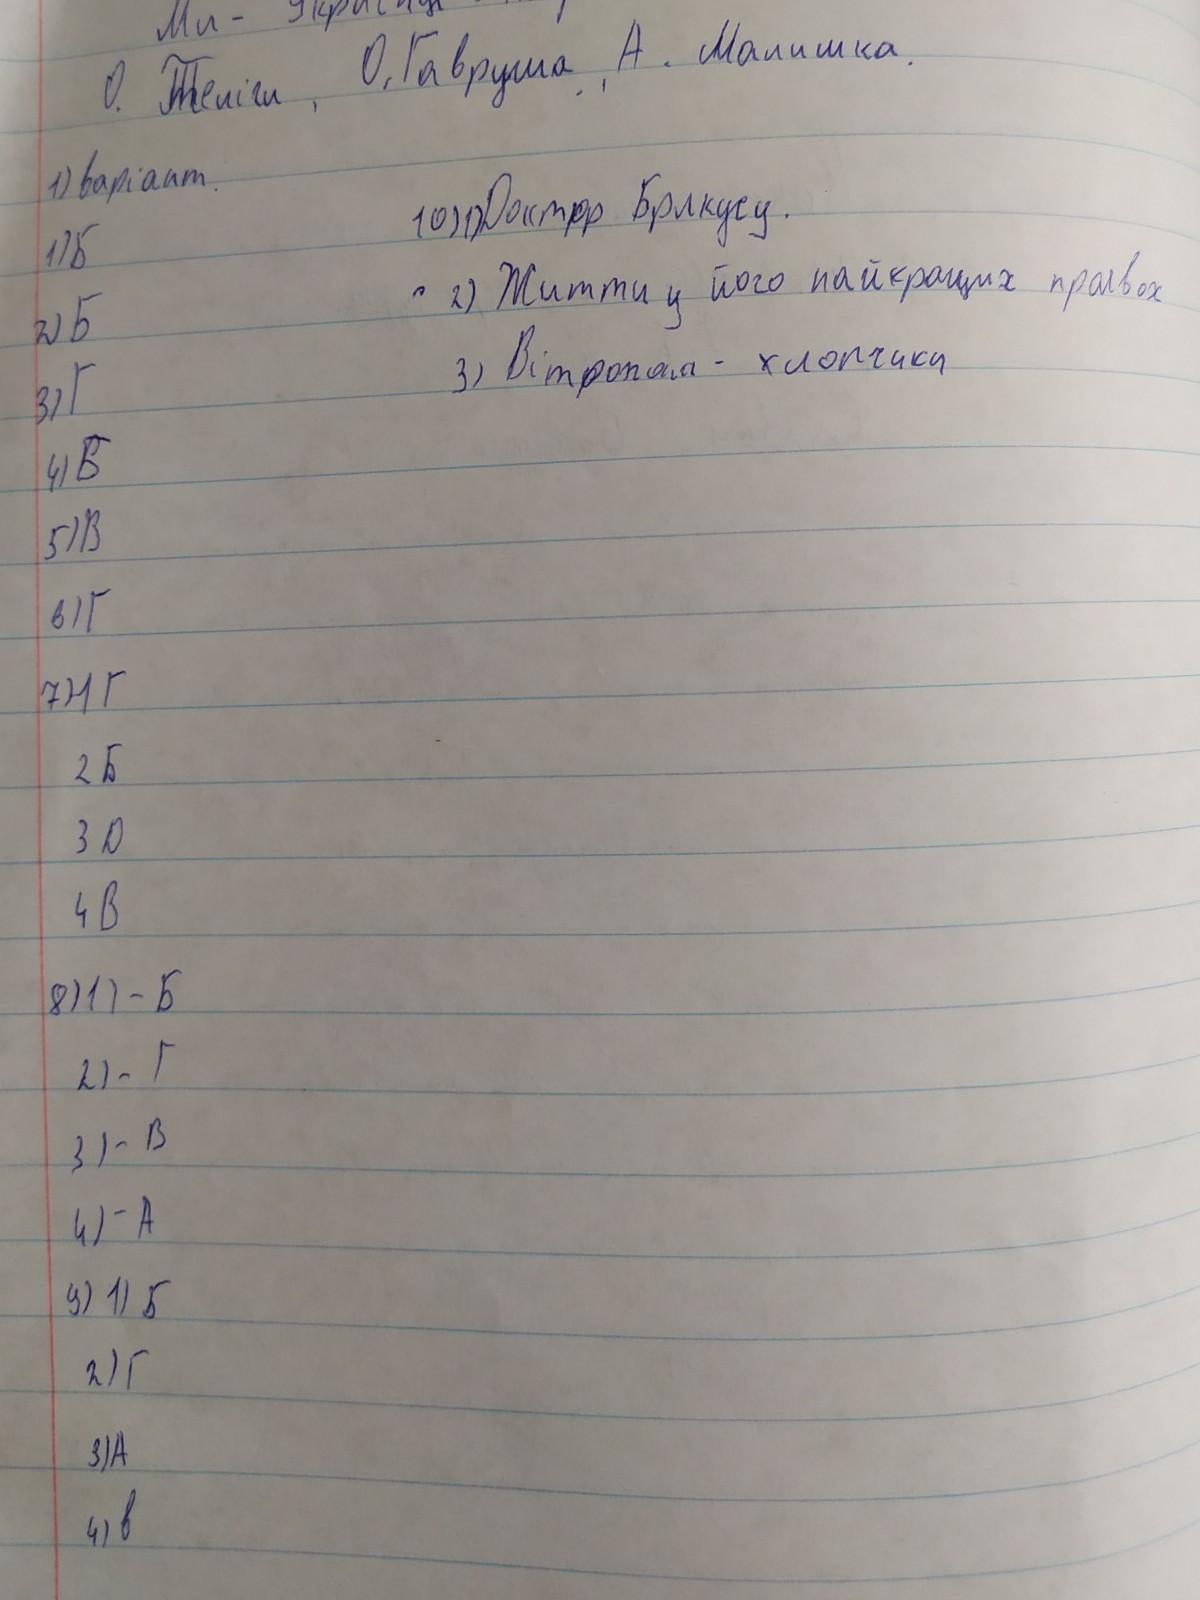 Ми -
О. Теліги, О. Гавруша, А. Малишка.
1) варіант.
1) Б
2) Б
3) Г
4) Б
5) В
6) Г
7) 1 Г
2 Б
3 D
4 В
8) 1) - Б
2) - Г
3) - В
4) - А
9) 1) Б
2) Г
3) А
4) в
10) 1) Доктор Брлкусу.
2) Життя у його найкращих проявах
3) Вітропола - хлопчики